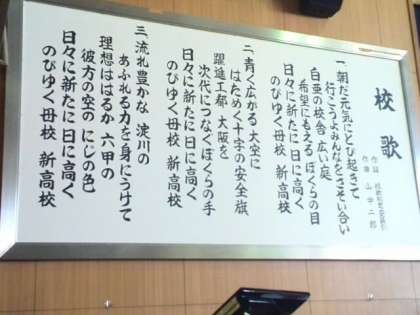 校歌
作詞 校歌制定委員会
作曲 山中二郎
一、朝だ元気にとび起きて
行こうよみんなをさそい合い
白亜の校舎 広い庭
希望にもえるぼくらの目
日々に新たに日に高く
のびゆく母校 新高校
二、青く広がる大空に
はためく十字の安全旗
躍進工都 大阪を
次代につなぐぼくらの手
日々に新たに日に高く
のびゆく母校 新高校
三、流れ豊かな 淀川の
あふれる力を身にうけて
理想ははるか 六甲の
彼方の空の にじの色
日々に新たに日に高く
のびゆく母校 新高校